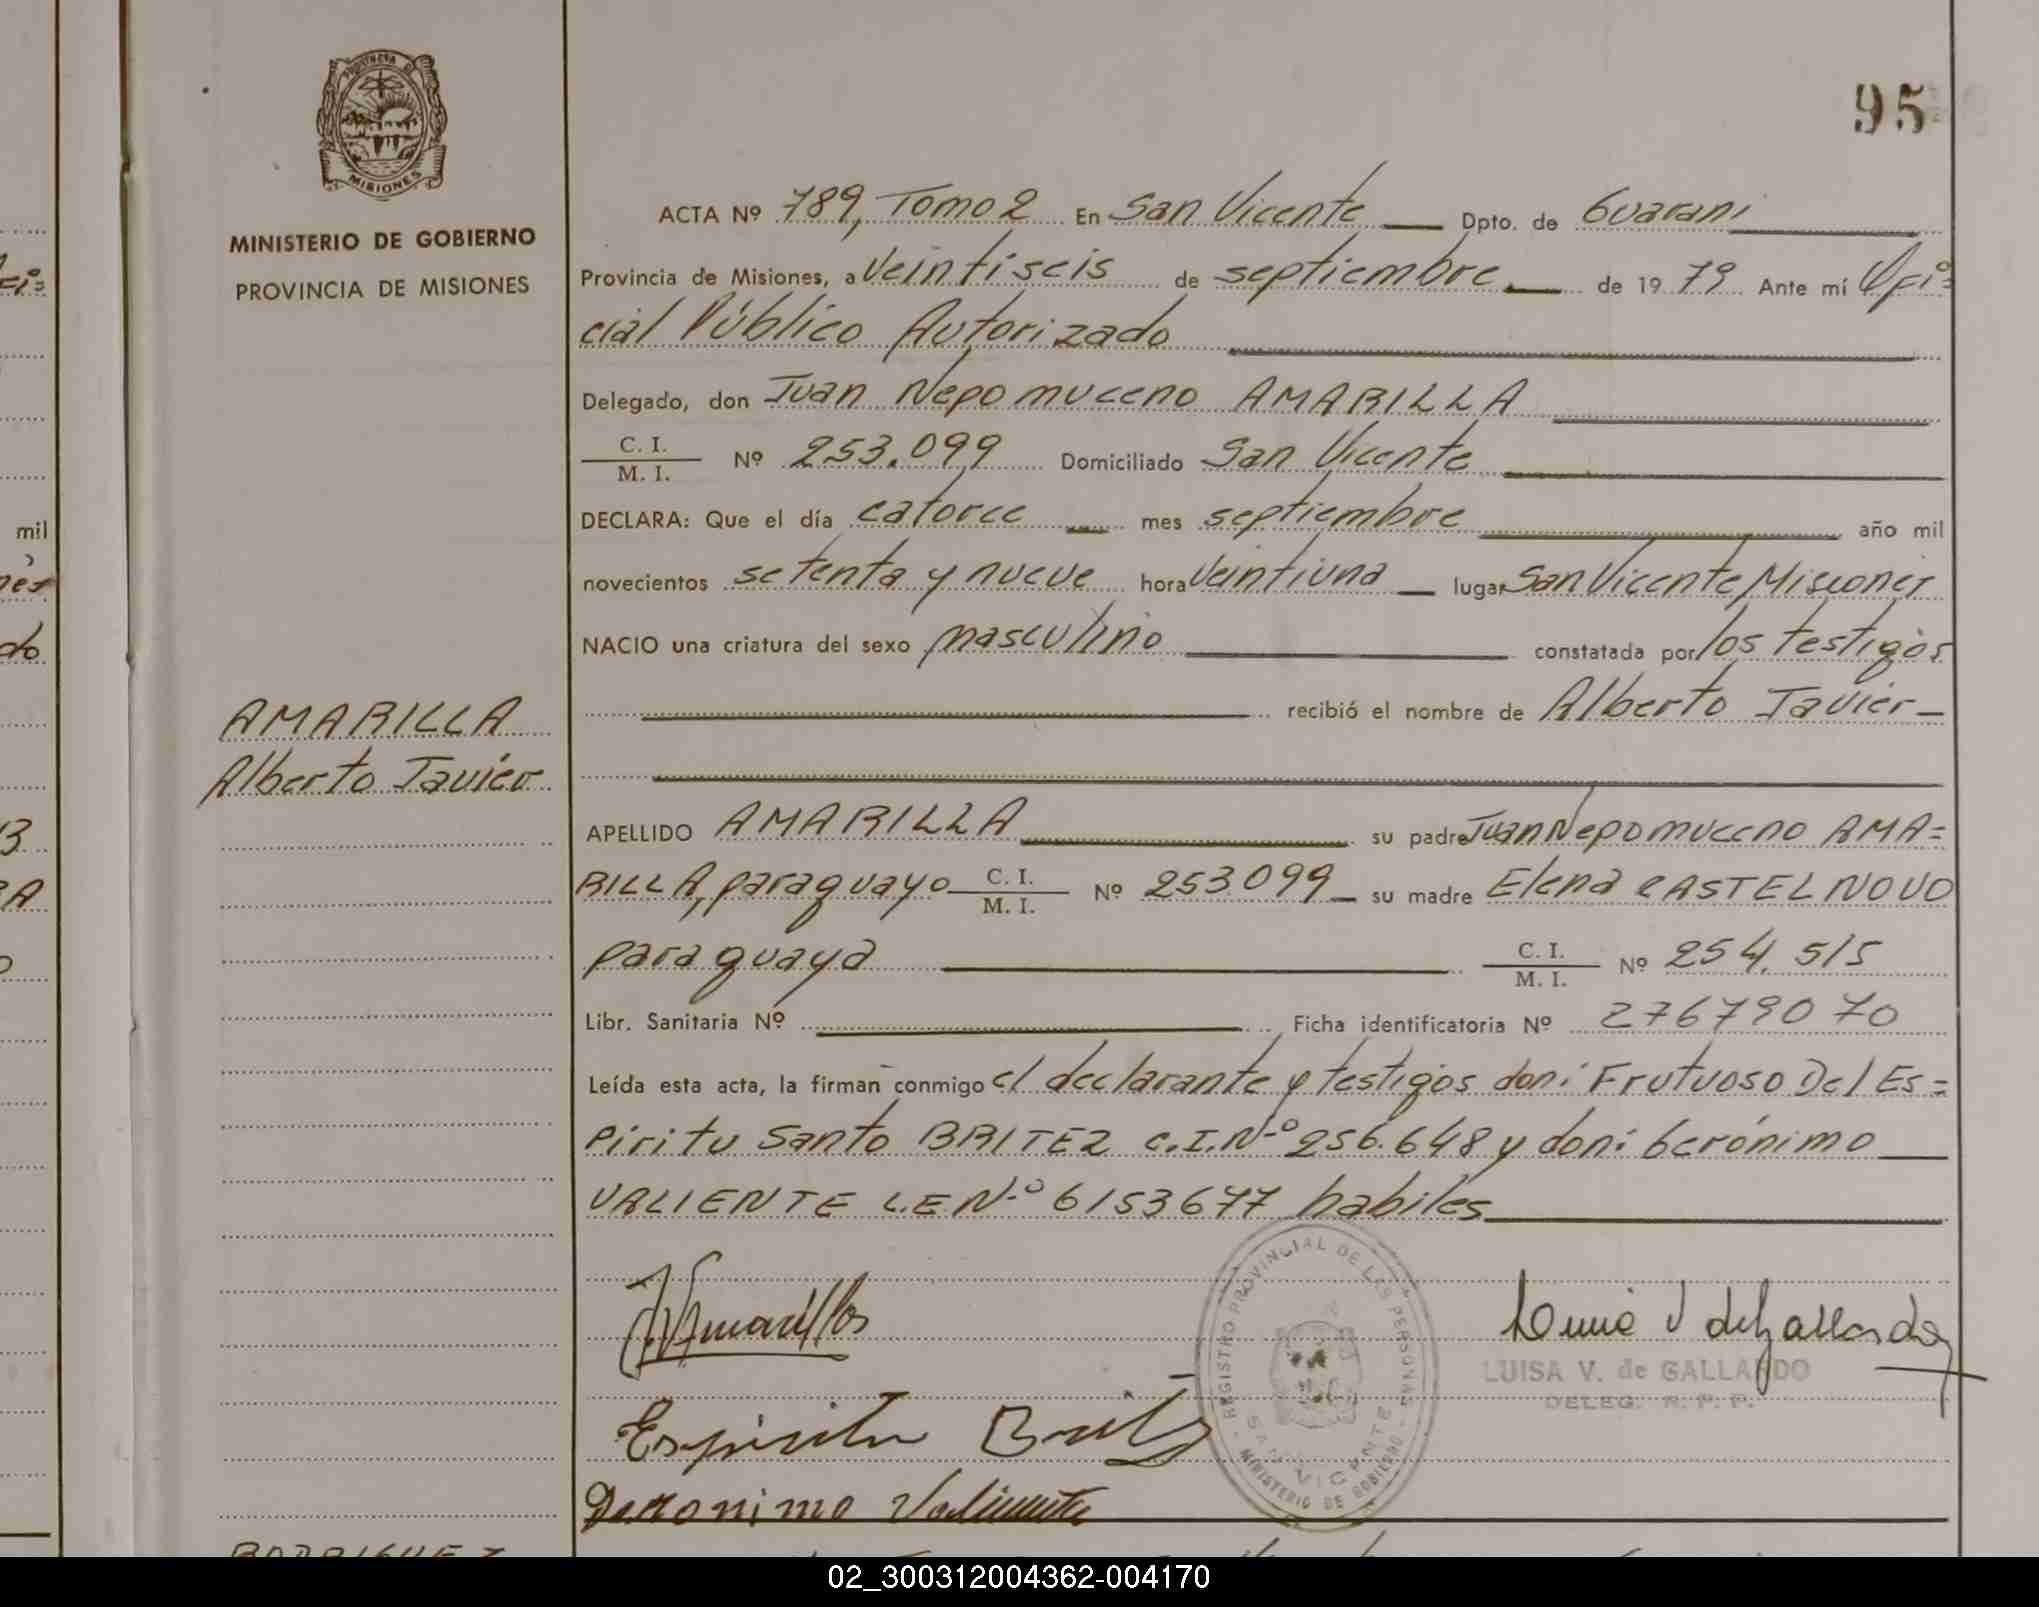 95
PROVINCIA DE
MISIONES
MINISTERIO DE GOBIERNO
PROVINCIA DE MISIONES
AMARILLA
Alberto Javier
ACTA Nº 789, Tomo 2 En San Vicente Dpto. de Guarani
Provincia de Misiones, a veintiseis de septiembre de 1979 Ante mí Ofi=
cial Público Autorizado
Delegado, don Juan Nepomuceno AMARILLA
C. I. / M. I. Nº 253.099 Domiciliado San Vicente
DECLARA: Que el día catorce mes septiembre año mil
novecientos setenta y nueve hora veintiuna lugar San Vicente, Misiones
NACIO una criatura del sexo masculino constatada por los testigos
recibió el nombre de Alberto Javier
APELLIDO AMARILLA su padre Juan Nepomuceno AMA=
RILLA, paraguayo C. I. / M. I. Nº 253.099 su madre Elena CASTELNOVO
paraguaya C. I. / M. I. Nº 254.515
Libr. Sanitaria Nº Ficha identificatoria Nº 27679070
Leída esta acta, la firman conmigo el declarante y testigos don: Frutuoso Del Es=
piritu Santo BRITEZ C.I.Nº 256.648 y don: Gerónimo
VALIENTE L.E.Nº 6153677 habiles
JNAmarilla
Luisa V de Gallardo
LUISA V. de GALLARDO
DELEG. R. P. P.
Espiritu Britez
Geronimo Valiente
REGISTRO PROVINCIAL DE LAS PERSONAS
SAN VICENTE
MINISTERIO DE GOBIERNO
mil
do
RODRIGUEZ
02_300312004362-004170